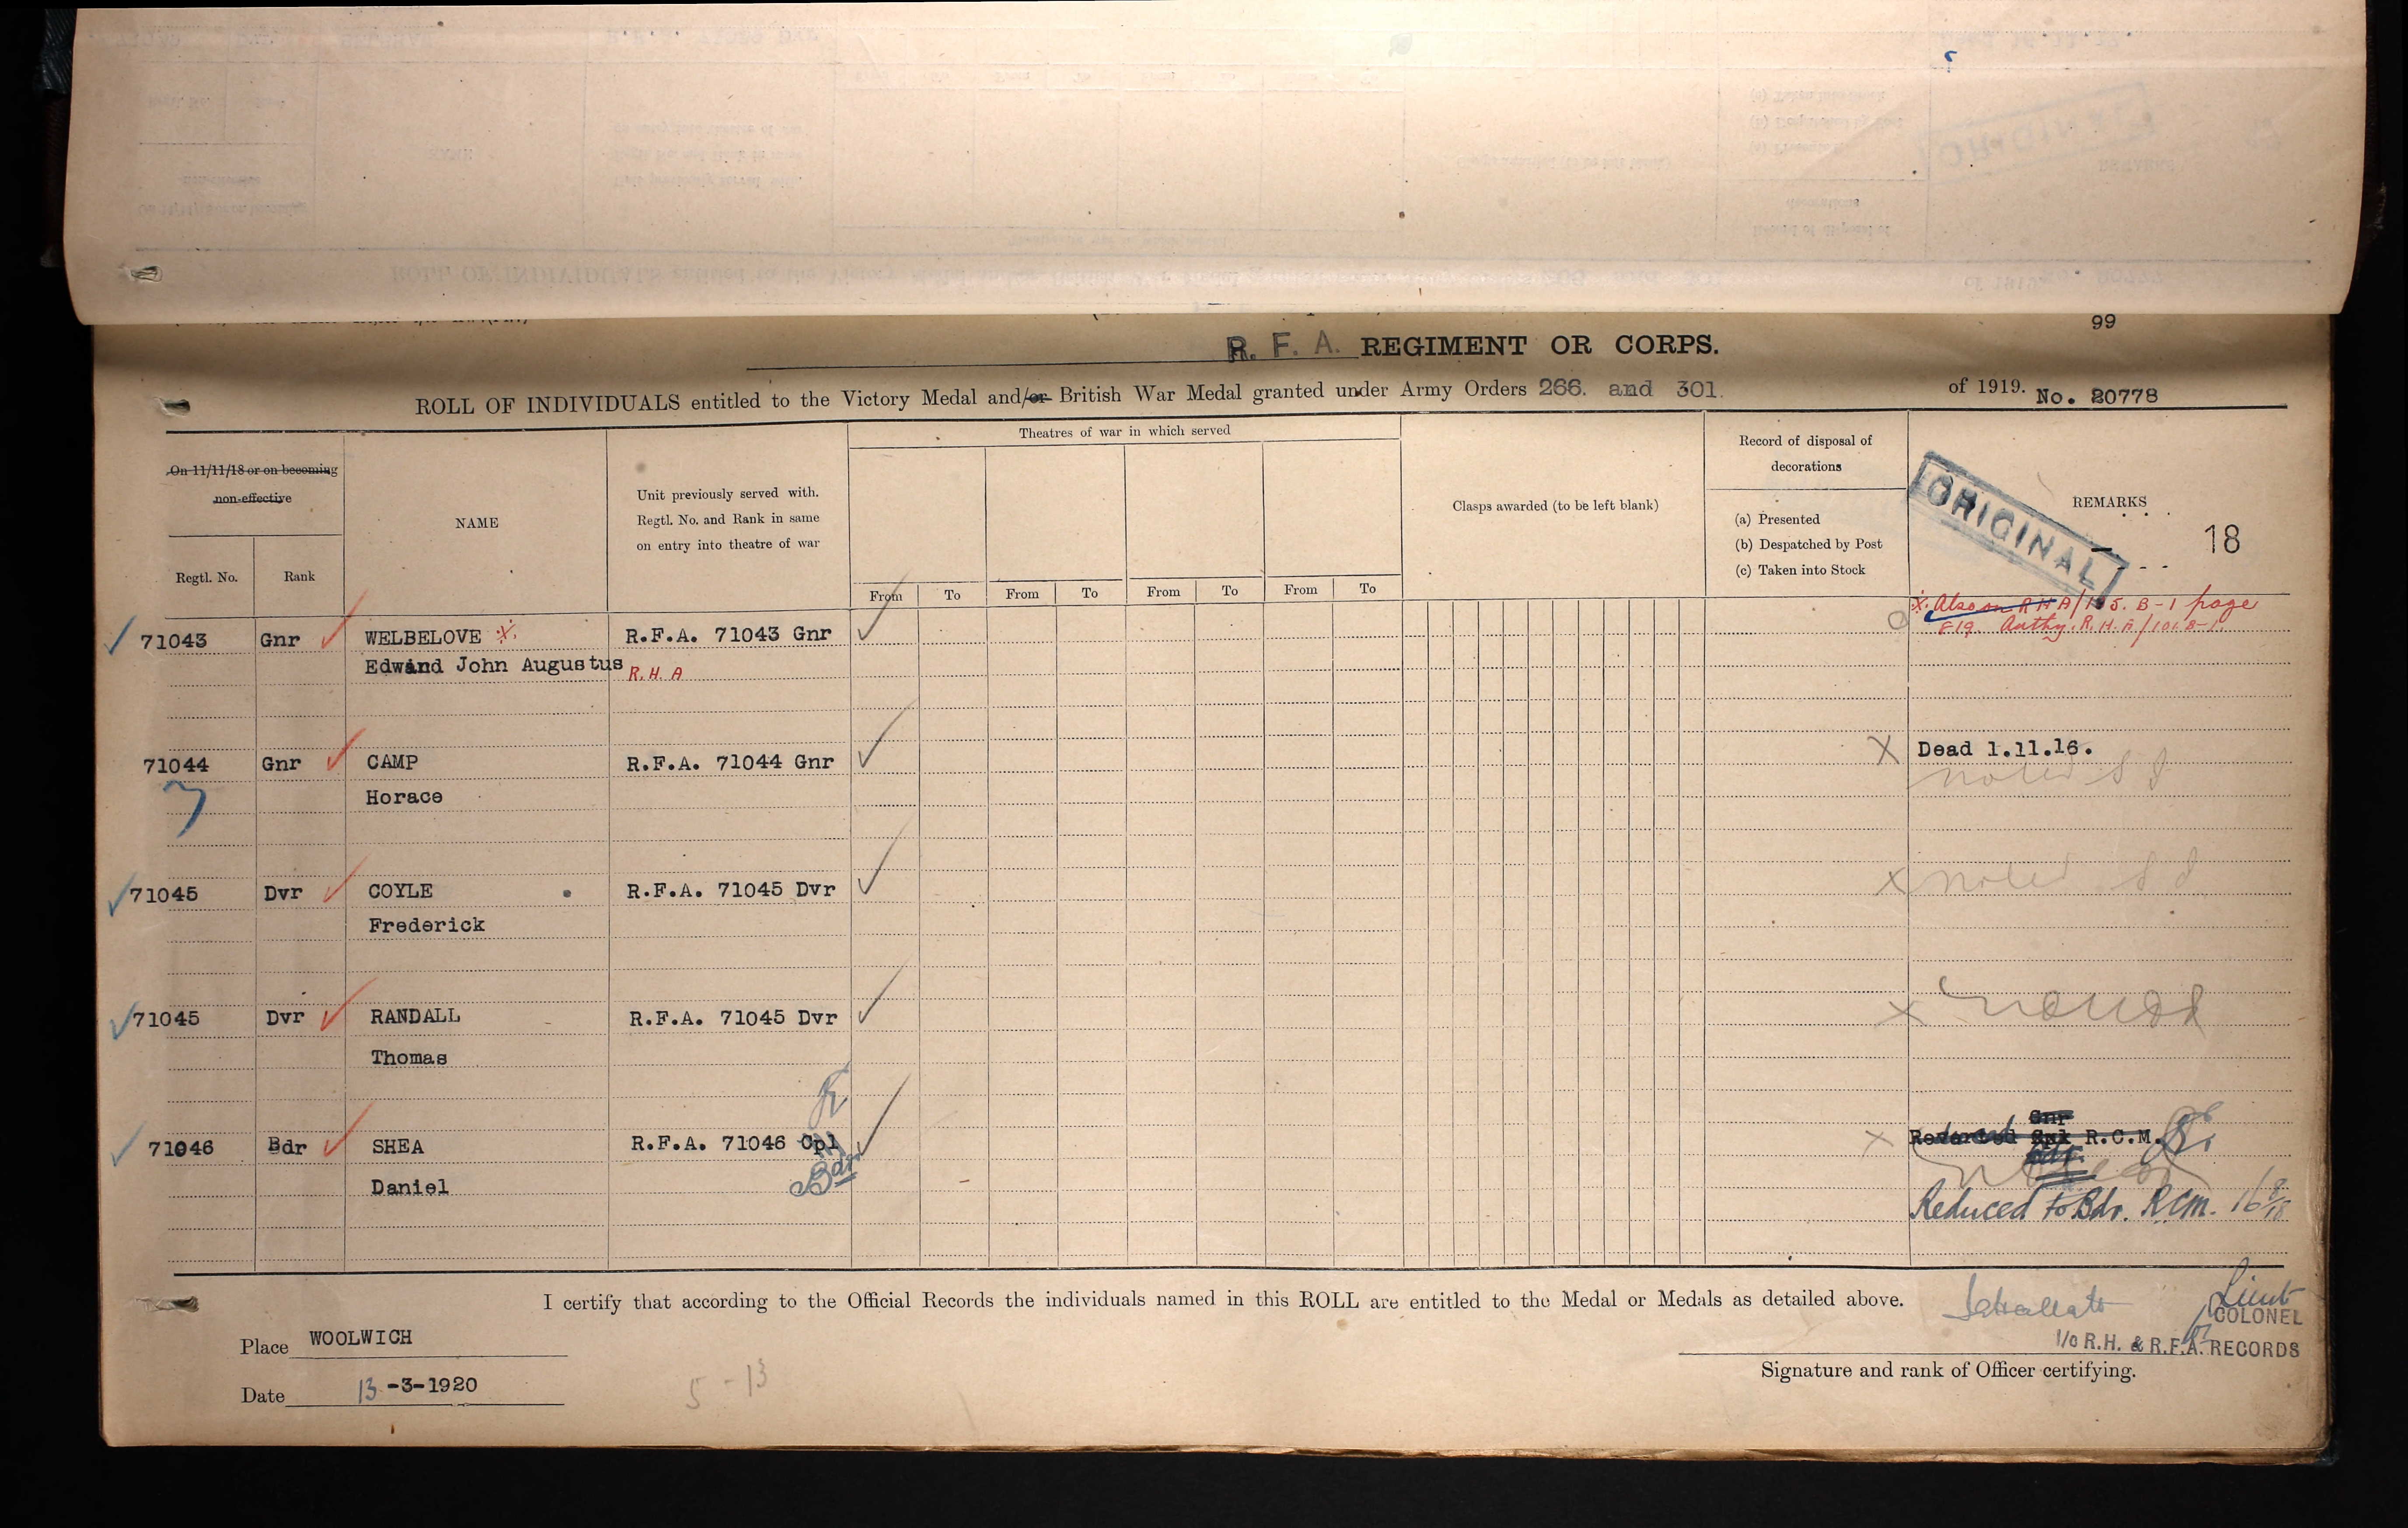 99
R. F. A. REGIMENT OR CORPS.
ROLL OF INDIVIDUALS entitled to the Victory Medal and/or British War Medal granted under Army Orders 266. and 301. of 1919. No. 20778
Theatres of war in which served
On 11/11/18 or on becoming non-effective
Regtl. No. Rank
NAME
Unit previously served with.
Regtl. No. and Rank in same
on entry into theatre of war
From To From To From To From To
Clasps awarded (to be left blank)
Record of disposal of
decorations
(a) Presented
(b) Despatched by Post
(c) Taken into Stock
REMARKS
ORIGINAL
18
71043 Gnr WELBELOVE R.F.A. 71043 Gnr Also on RHA/105. B-1 page
Edward John Augustus R.H.A 819. Authy. R.H.A/101.B-1.
71044 Gnr CAMP R.F.A. 71044 Gnr X Dead 1.11.16.
Horace noted
71045 Dvr COYLE R.F.A. 71045 Dvr X noted
Frederick
71045 Dvr RANDALL R.F.A. 71045 Dvr X
Thomas
Gnr
71046 Bdr SHEA R.F.A. 71046 Cpl X Reverted R.C.M.
Daniel Bdr
Reduced to Bdr. RCM. 16/8/18
I certify that according to the Official Records the individuals named in this ROLL are entitled to the Medal or Medals as detailed above.
Lieut
COLONEL
I/C R.H. & R.F.A. RECORDS
Signature and rank of Officer certifying.
Place WOOLWICH
Date 13-3-1920
5-13